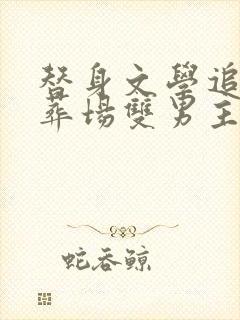 替身文學追
葬場雙男主
蛇吞鯨